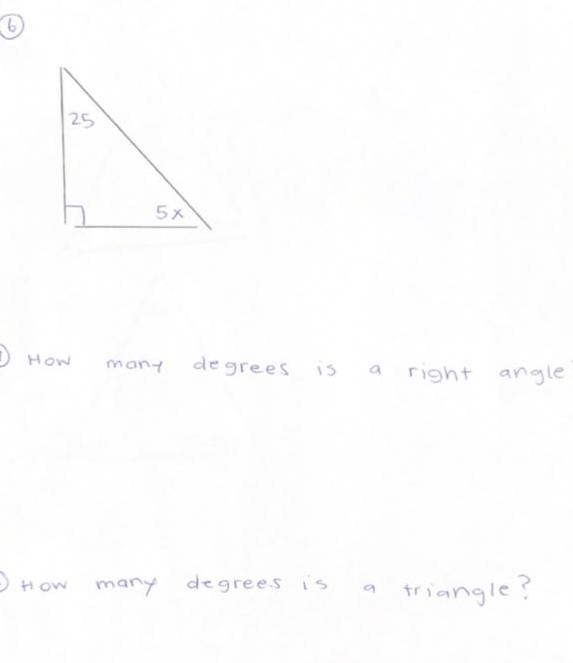 6
25
5x
How many degrees is a right angle
How many degrees is a triangle?